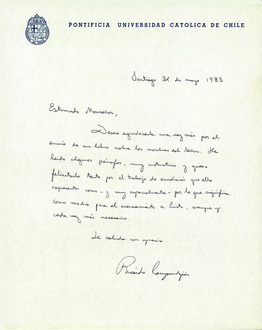 PONTIFICIA UNIVERSIDAD CATOLICA DE CHILE
Santiago 31 de mayo 1983
Estimado Monseñor,
Deseo agradecerle una vez más por el
envío de su libro sobre los nombres del Señor. He
leído algunos párrafos, muy instructivos y quiero
felicitarlo tanto por el trabajo de erudición que ello
representa como - y muy especialmente - por lo que significa
como medio para el acercamiento a Cristo, siempre y
cada vez más necesario.
Le saluda con aprecio
Ricardo